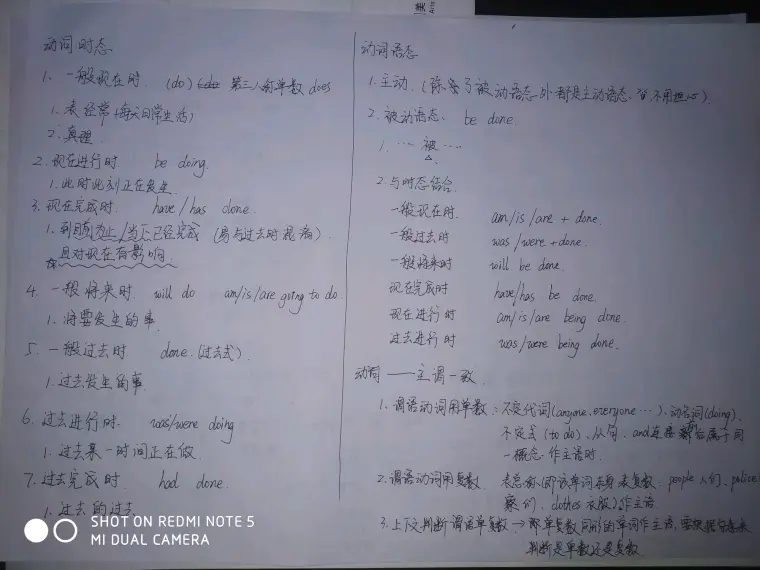 动词时态
1. 一般现在时. (do) 第三人称单数 does
1. 表经常(每天日常生活)
2. 真理.
2. 现在进行时 be doing.
1. 此时此刻正在发生
3. 现在完成时. have/has done.
1. 到目前为止/当下已经完成 (易与过去时混淆).
且对现在有影响.
4. 一般将来时. will do am/is/are going to do.
1. 将要发生的事.
5. 一般过去时 done. (过去式).
1. 过去发生的事.
6. 过去进行时. was/were doing
1. 过去某一时间正在做.
7. 过去完成时. had done.
1. 过去的过去
动词语态
1. 主动. (除了被动语态外都是主动语态, 不用担心).
2. 被动语态、 be done.
1. ···· 被 ····
2. 与时态结合.
一般现在时. am/is/are + done.
一般过去时 was/were + done.
一般将来时 will be done.
现在完成时 have/has be done.
现在进行时 am/is/are being done.
过去进行时 was/were being done.
动词 —— 主谓一致.
1. 谓语动词用单数: 不定代词(anyone, everyone ···)、动名词(doing)、
不定式(to do)、从句、and连接 属于同
一概念 作主语时.
2. 谓语动词用复数 (即该单词本身表复数: people 人们、police
察们、clothes 衣服)作主语
3. 上下文判断谓语单复数 → 即单复数同形的单词作主语, 要根据
判断是单数还是复数.
SHOT ON REDMI NOTE 5
MI DUAL CAMERA